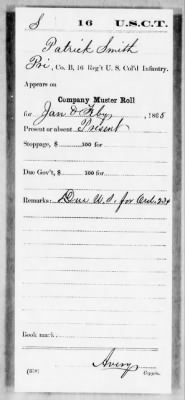 S 16 U.S.C.T.
Patrick Smith
Pri, Co. B, 16 Reg't U. S. Col'd Infantry.
Appears on
Company Muster Roll
for Jan & Feby, 1865
Present or absent Present
Stoppage, $ 100 for
Due Gov't, $ 100 for
Remarks: Due U.S. for Ord. 234
Book mark:
Avery
(358) Copyist.